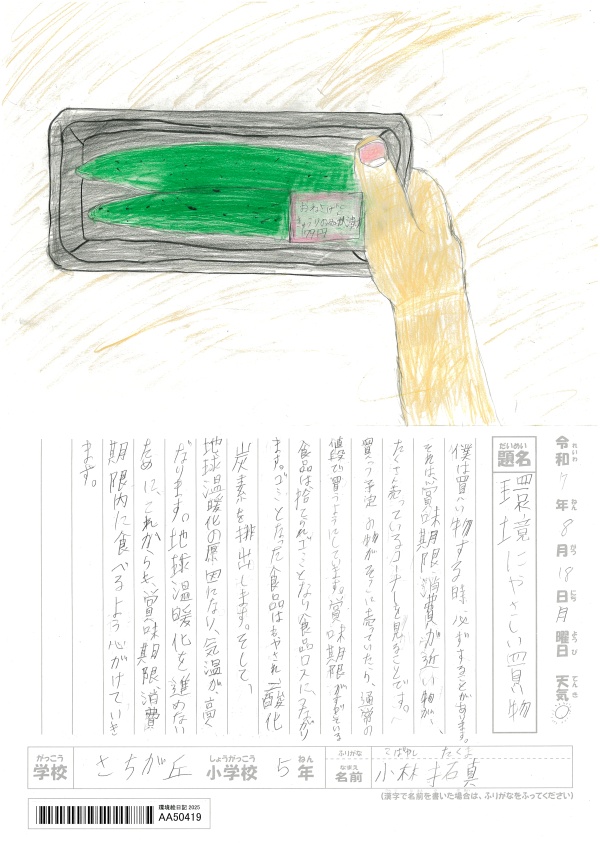 おねさげで
きゅうりのお漬
79円
令和7年8月18日月曜日 天気
れいわ ねん がつ にち ようび てんき
だいめい
題名
環境にやさしい買い物
僕は買い物する時、必ずすることがあります。
それは、賞味期限、消費が近い物が、
たくさん売っているコーナーを見ることです。
買う予定の物がそこに売っていたら、通常の
値段で買うようにしています。賞味期限がすぎている
食品は捨てられ、ゴミとなり食品ロスにつながり
ます。ゴミとなった食品はもやされ、二酸化
炭素を排出します。そして、
地球温暖化の原因になり、気温が高く
なります。地球温暖化を進めない
ために、これからも、賞味期限、消費
期限内に食べるよう心がけていき
ます。
がっこう しょうがっこう ねん
学校 さちが丘 小学校 5年
ふりがな こばやし たくま
なまえ
名前 小林拓真
(漢字で名前を書いた場合は、ふりがなをふってください)
環境絵日記 2025
AA50419